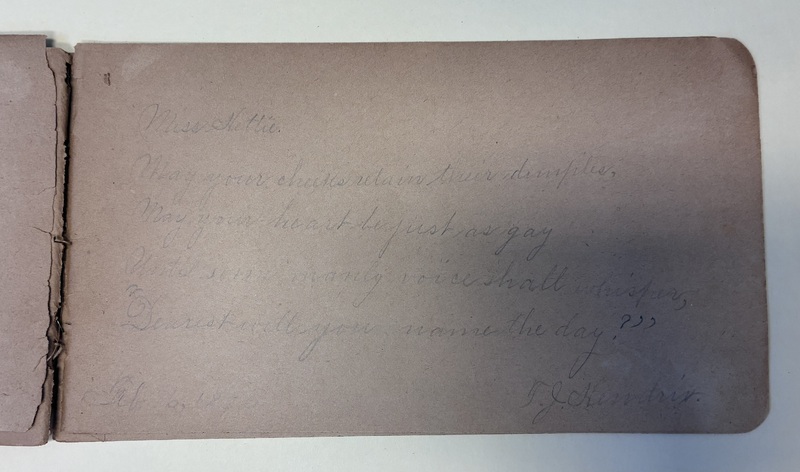 Miss Nettie.
May your cheeks retain their dimples,
May your heart be just as gay
Until some manly voice shall whisper,
"Dearest will you name the day?"
T. J. Hendrix.